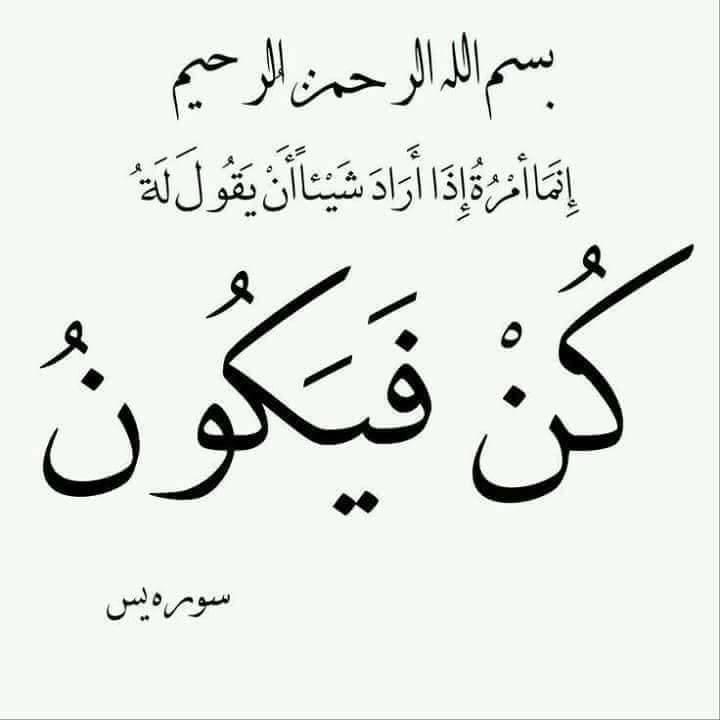 بسم الله الرحمن الرحيم
إِنَمَا أمْرُةُ إِذَا أَرَادَ شَيْئاً أَنْ يَقُولَ لَةُ
كُنْ فَيَكُونُ
سوره یس